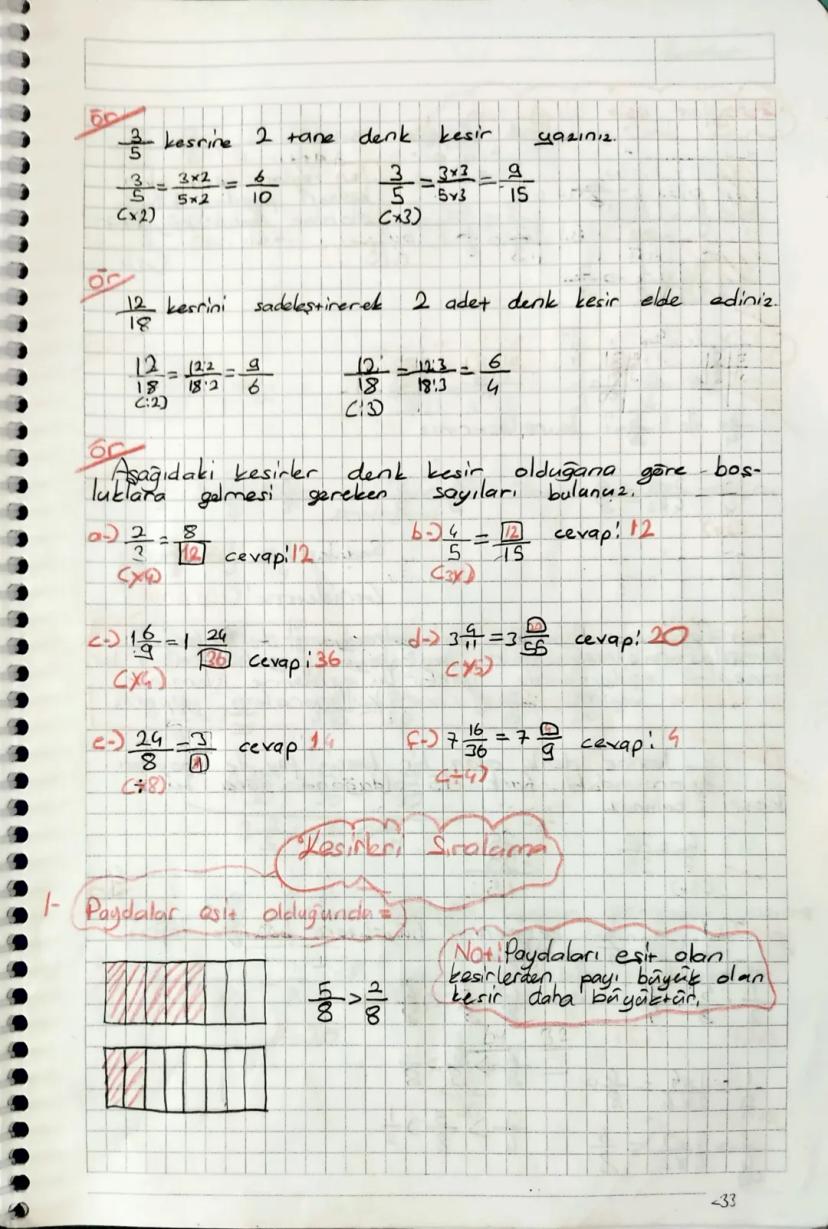 ör
3/5 kesrine 2 tane denk kesir yazınız.
3/5 = 3x2/5x2 = 6/10 3/5 = 3x3/5x3 = 9/15
(x2) (x3)
ör
12/18 kesrini sadeleştirerek 2 adet denk kesir elde ediniz.
12/18 = 12:2/18:2 = 9/6 12/18 = 12:3/18:3 = 6/4
(:2) (:3)
ör
Aşağıdaki kesirler denk kesir olduğana göre boş-
luklara gelmesi gereken sayıları bulunuz.
a-) 2/3 = 8/12 cevap: 12 b-) 4/5 = 12/15 cevap: 12
(x4)
c-) 1 6/9 = 1 24/36 cevap: 36 d-) 3 4/11 = 3 20/55 cevap: 20
(x4) (x5)
e-) 24/8 = 3/1 cevap f-) 7 16/36 = 7 4/9 cevap: 4
(÷8) (÷4)
Kesirleri Sıralama
1- Paydalar eşit olduğunda =
5/8 > 2/8
Not: Paydaları eşit olan
kesirlerden payı büyük olan
kesir daha büyüktür.
33